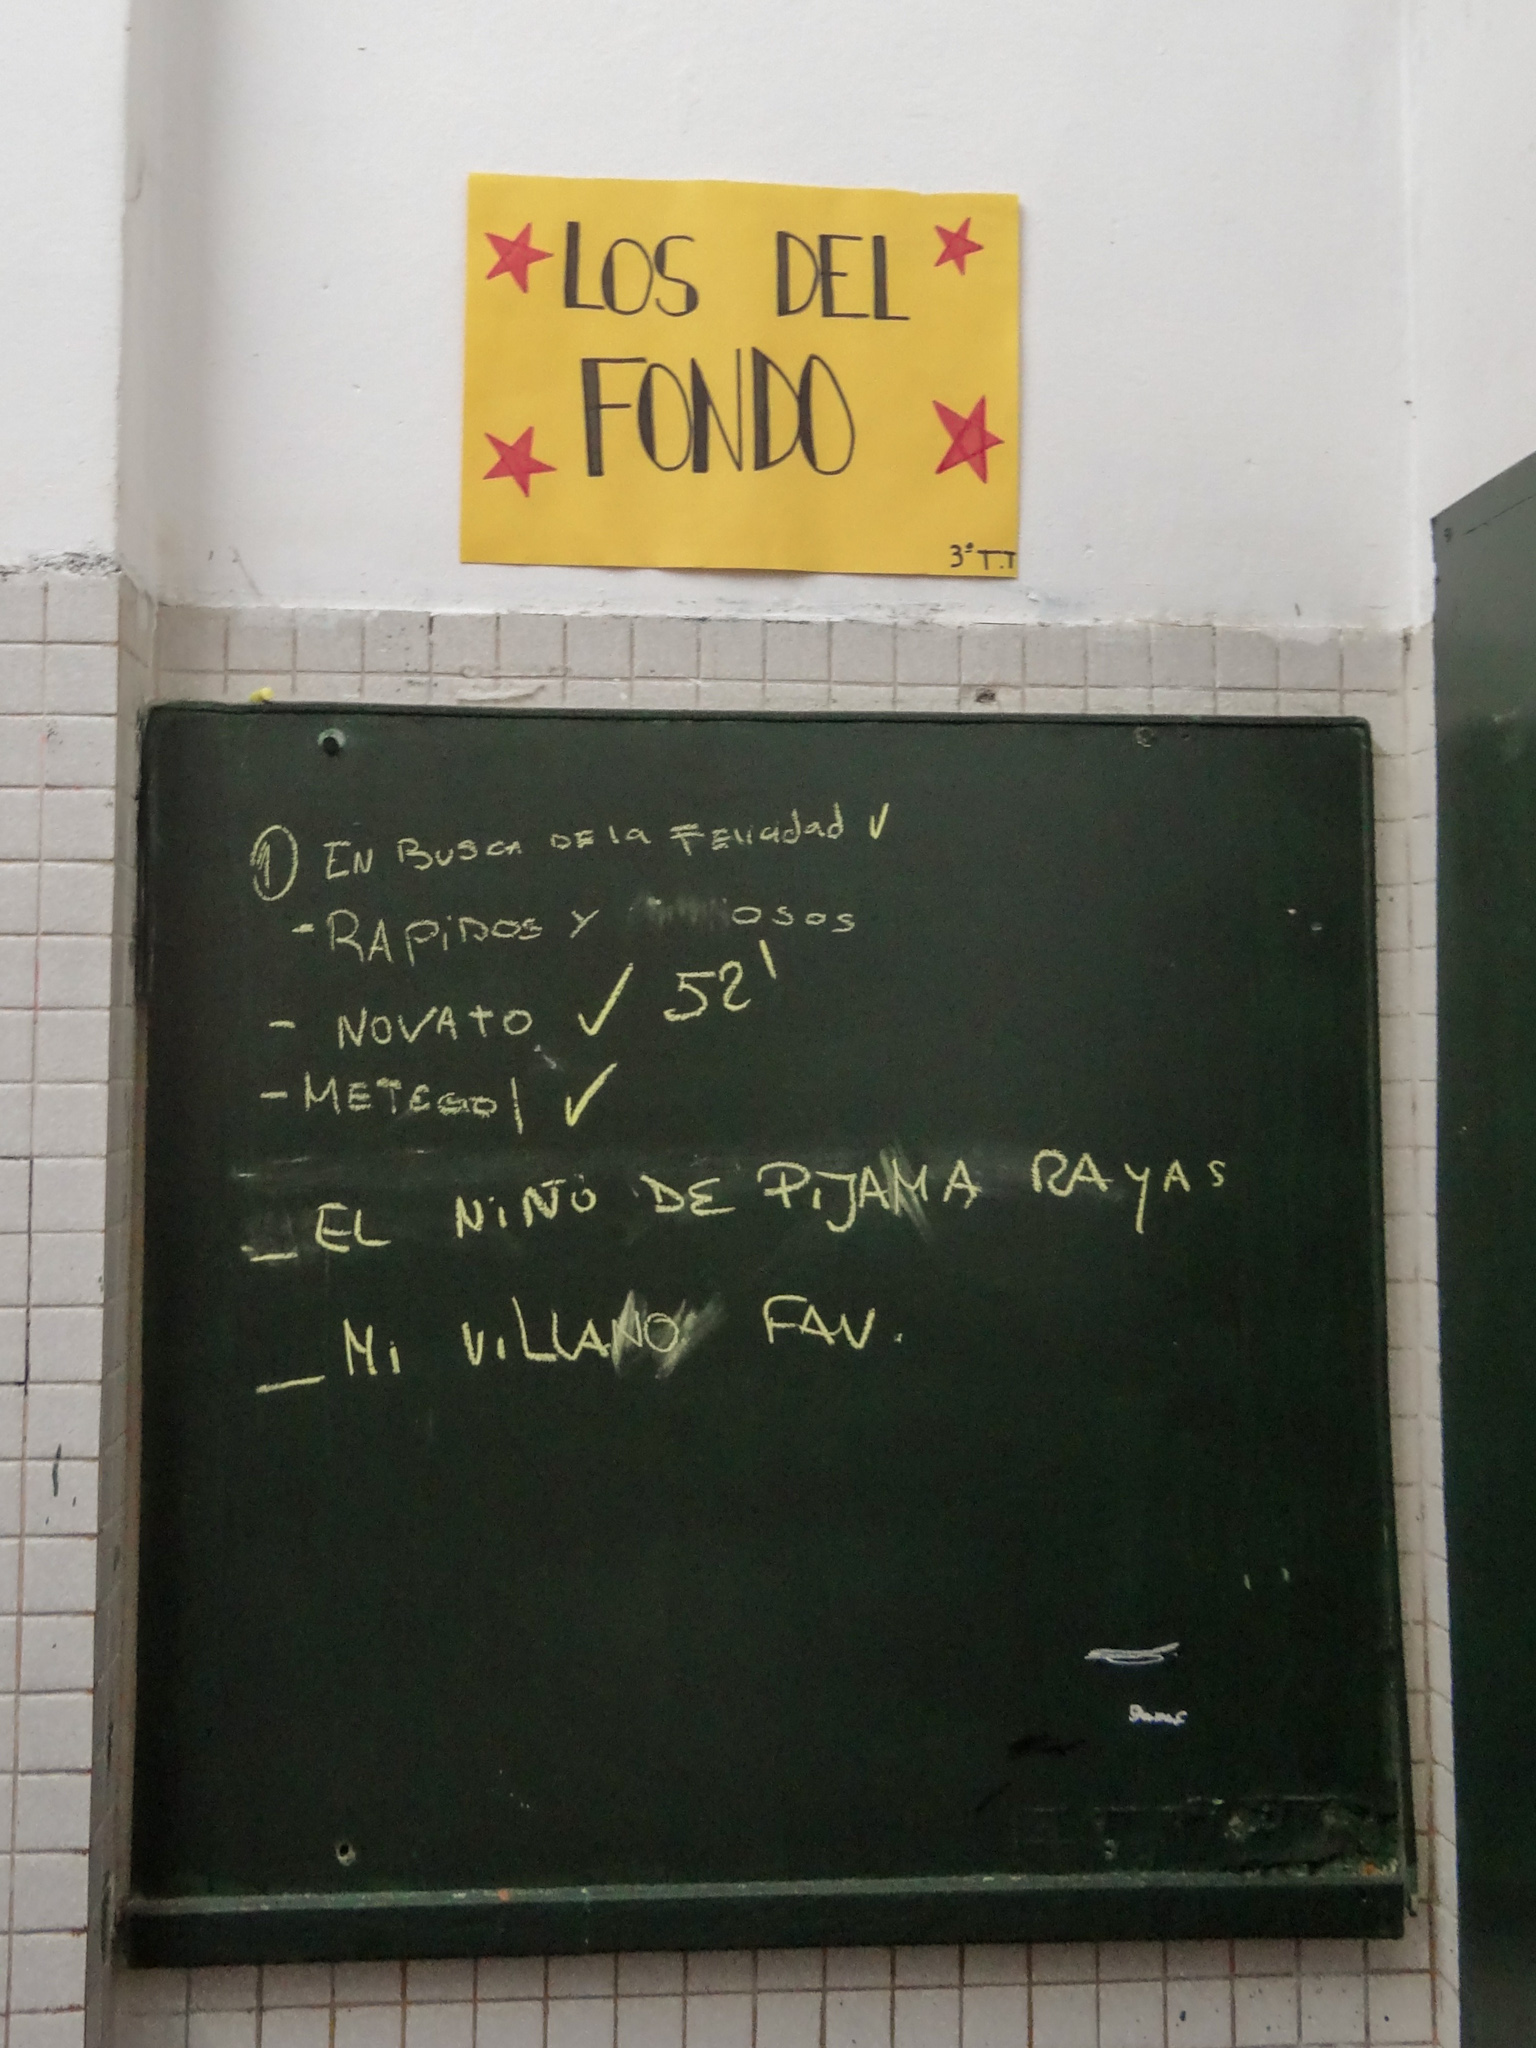 LOS DEL
FONDO
3° T.T
① EN BUSCA DE la FElicidad ✓
- RAPiDOS y osos
- NOVATO ✓ 52'
- METEGOl ✓
_ EL NiÑO DE PiJAMA RAyAs
_ Mi ViLLANO FAV.